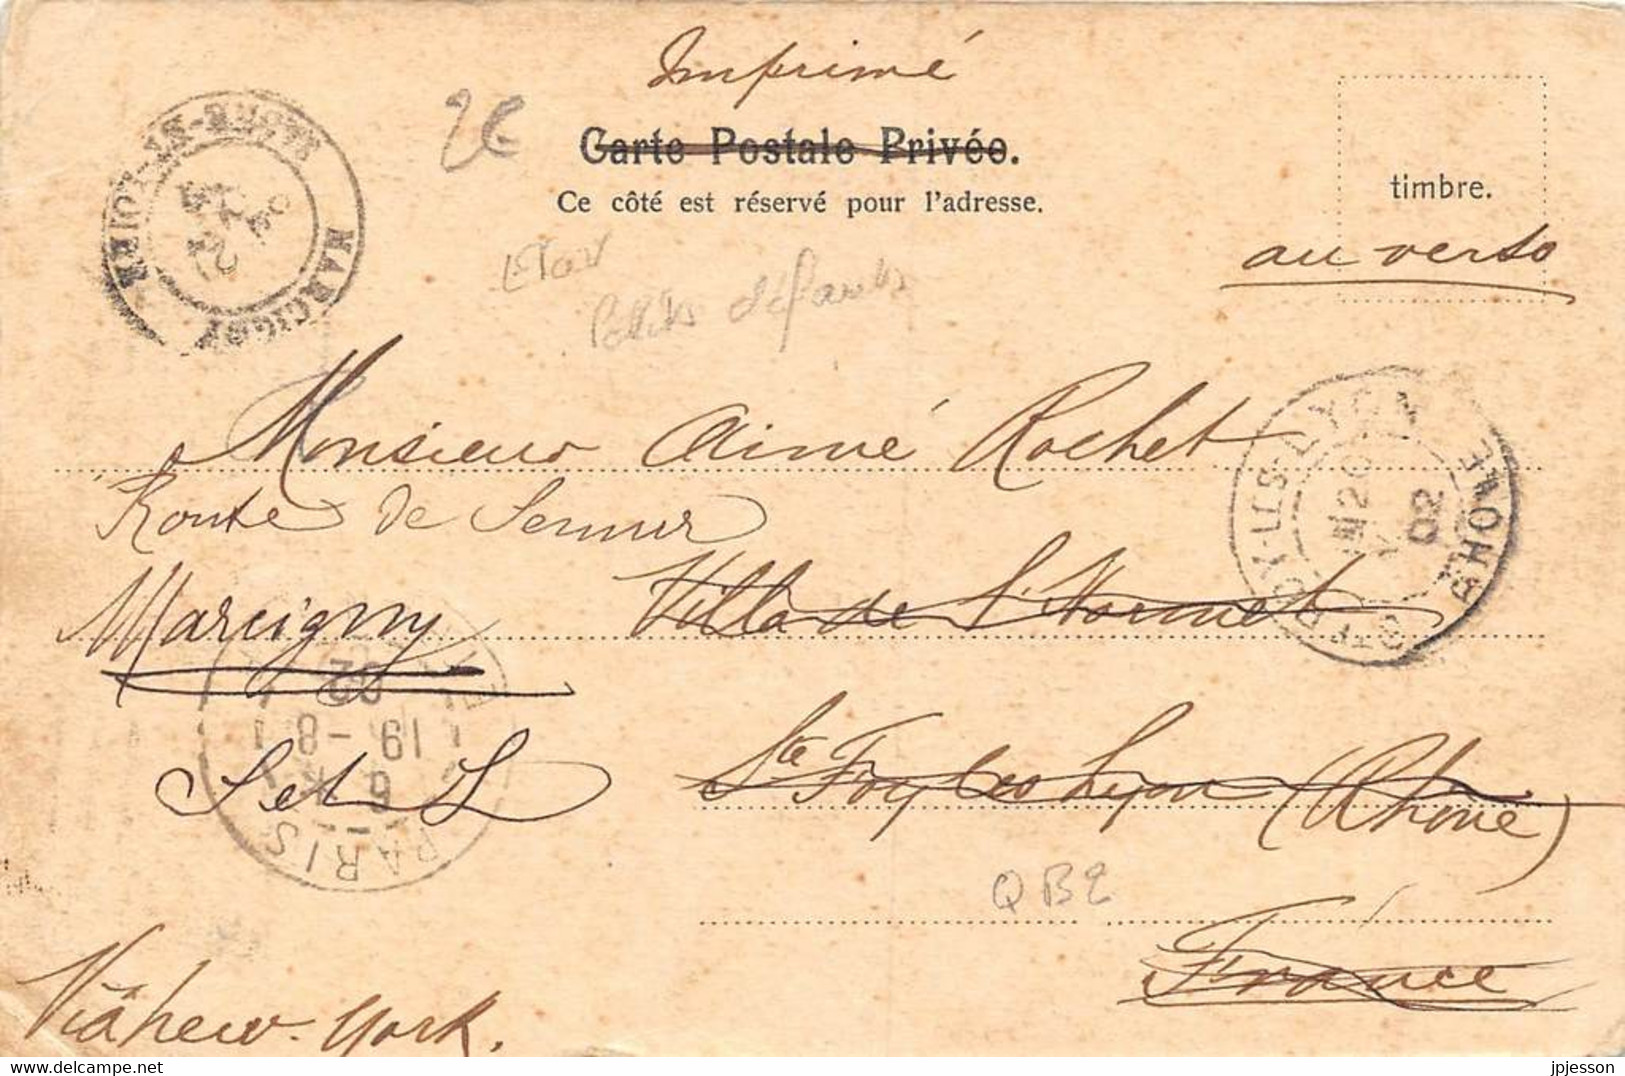 Imprimé
2€
Carte Postale Privée.
Ce côté est réservé pour l'adresse.
timbre.
au verso
MARCIGNY
Etat
petits défauts
Monsieur Aimé Rochet
Route de Semur
Marcigny
S et L
Villa de l'Hormet
Ste Foy les Lyon (Rhône)
France
STE FOY-LES-LYON
RHONE
20
02
PARIS
6
19 -8
02
QB2
Viâ new-york.
jpjesson